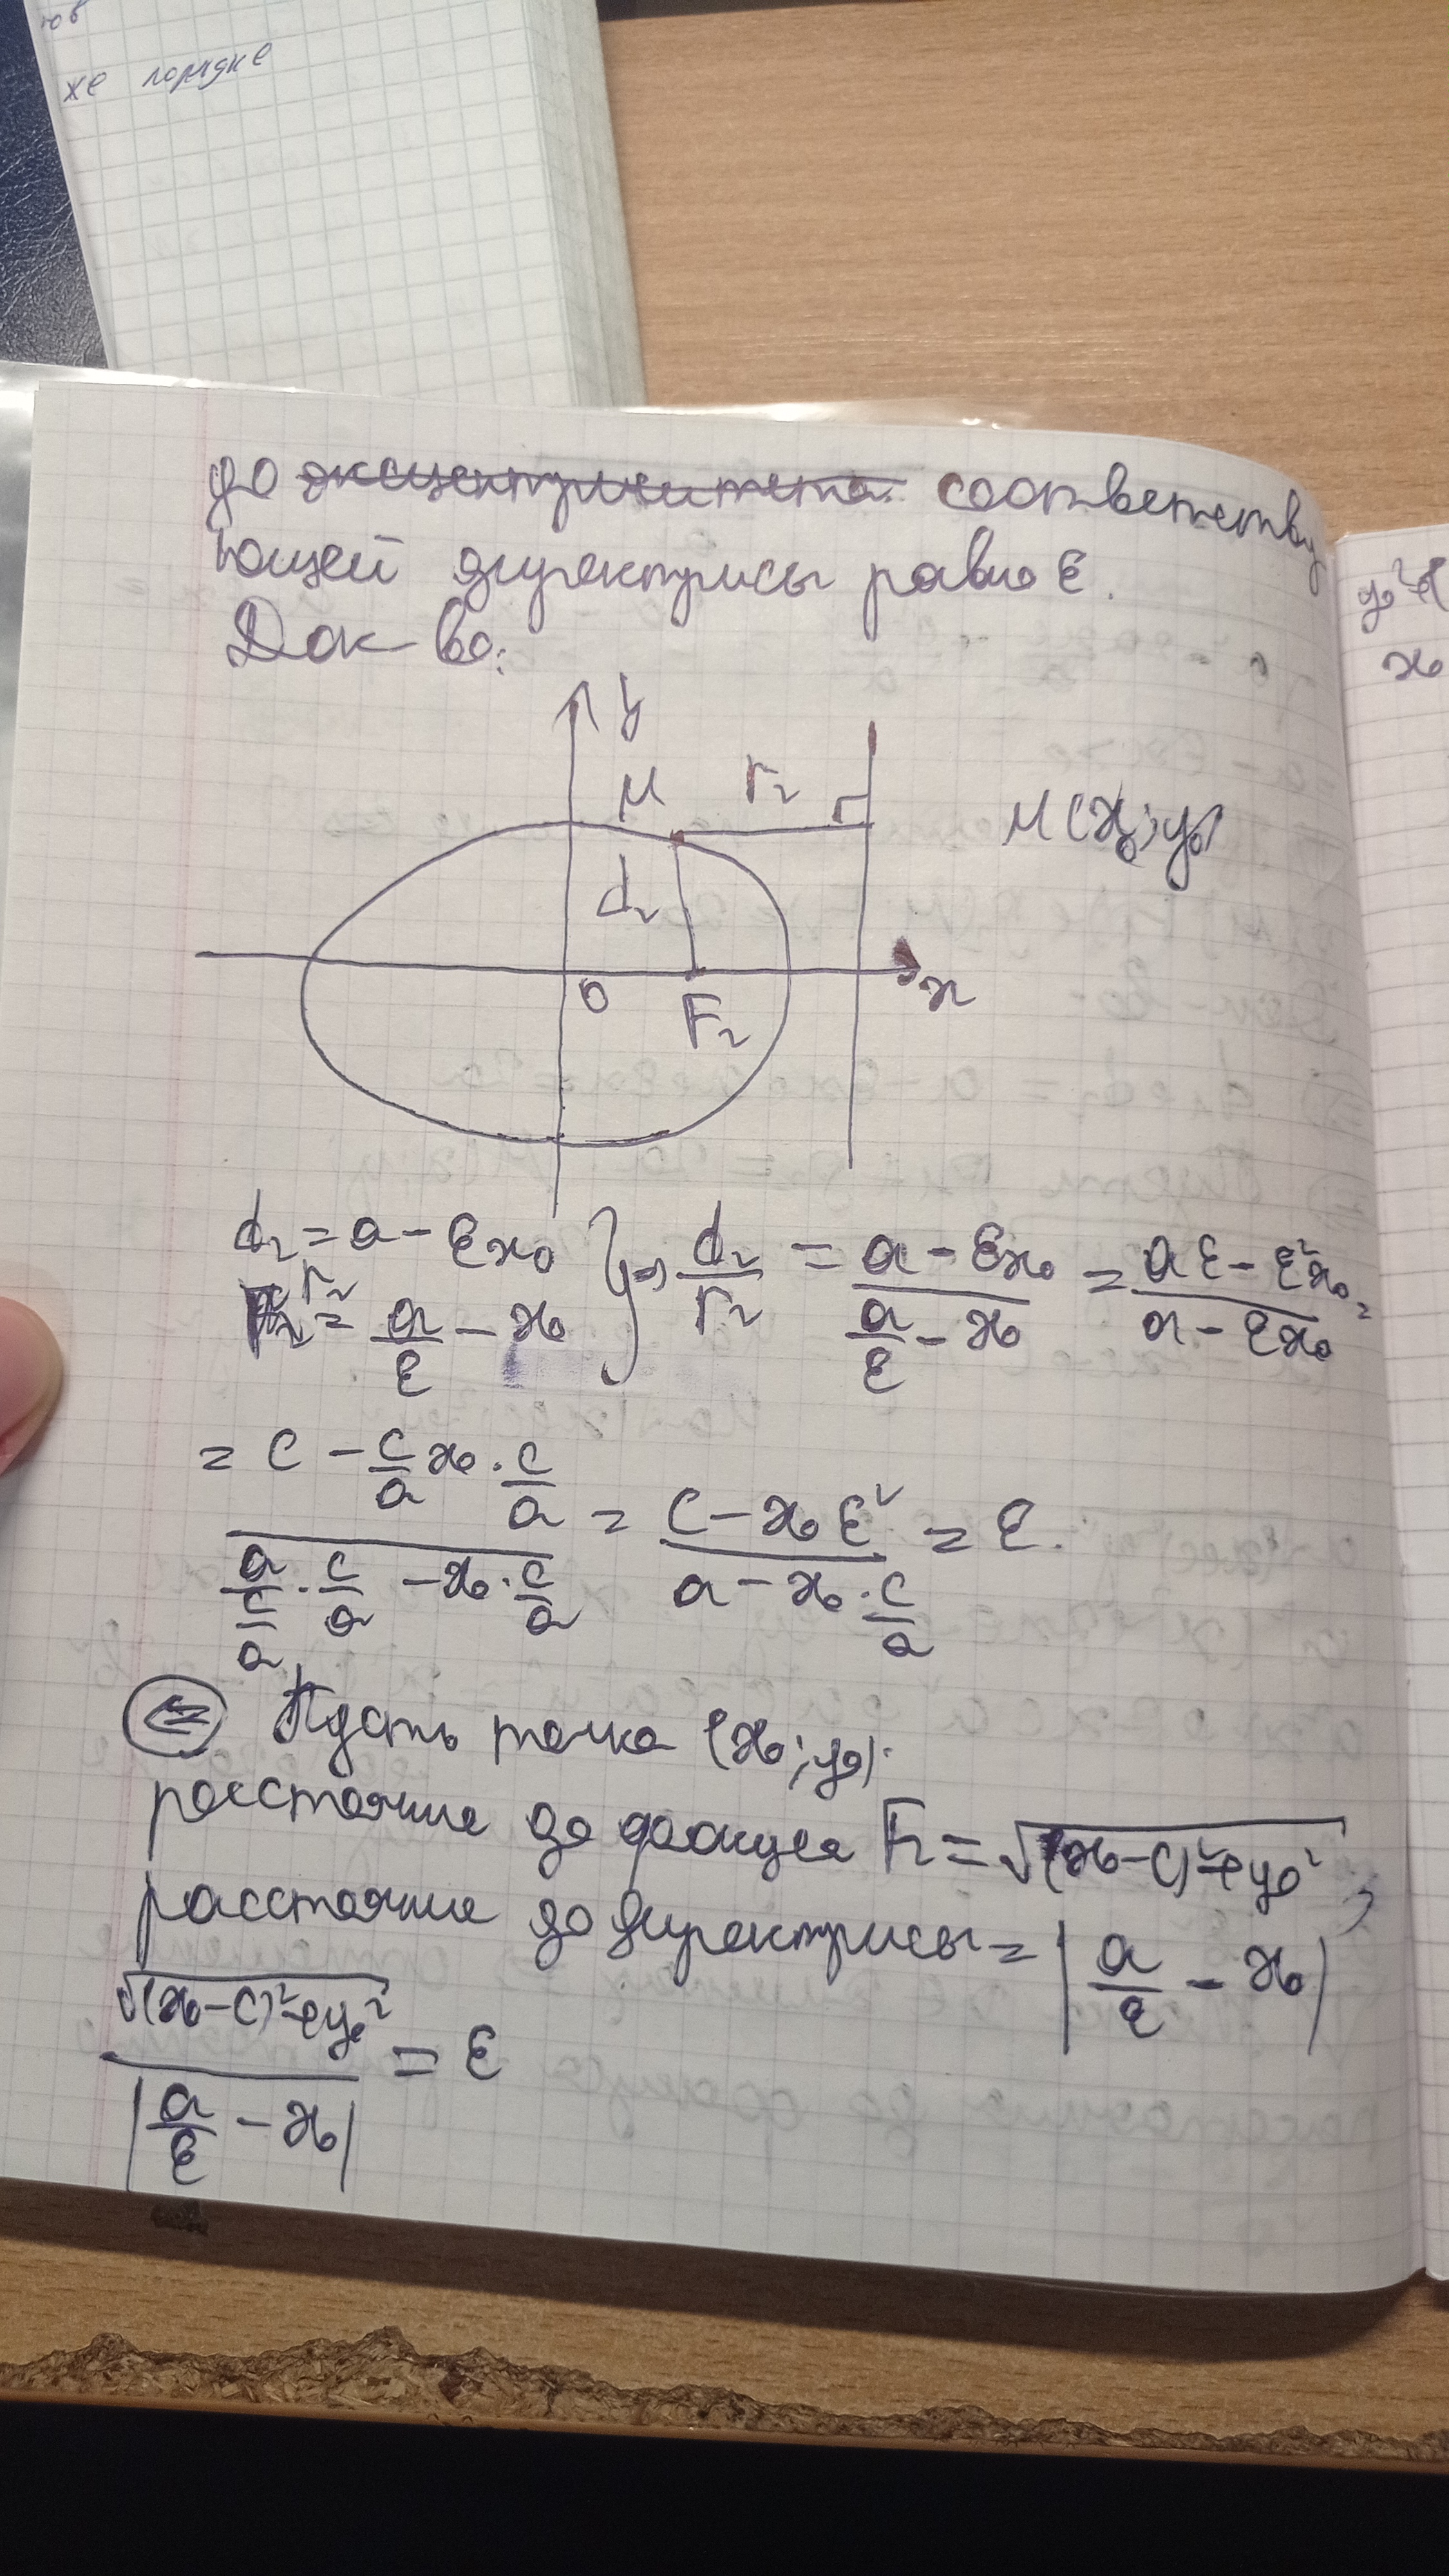 юв
же порядке
до эксцентриситета соответству
ющей директрисы равно ε.
Док-во:
y
M
r₂
M(x₀; y₀)
d₂
0
F₂
x
d₂ = a - εx₀
r₂ = a/ε - x₀ } => d₂/r₂ = (a - εx₀)/(a/ε - x₀) = (aε - ε²x₀)/(a - εx₀) =
= (c - c/a x₀ · c/a)/(a/(c/a) · c/a - x₀ · c/a) = (c - x₀ε²)/(a - x₀ · c/a) = ε.
⇐ Пусть точка (x₀; y₀).
расстояние до фокуса F₂ = √((x₀-c)²+y₀²),
расстояние до директрисы = |a/ε - x₀|
√((x₀-c)²+y₀²)/|a/ε - x₀| = ε
x₀